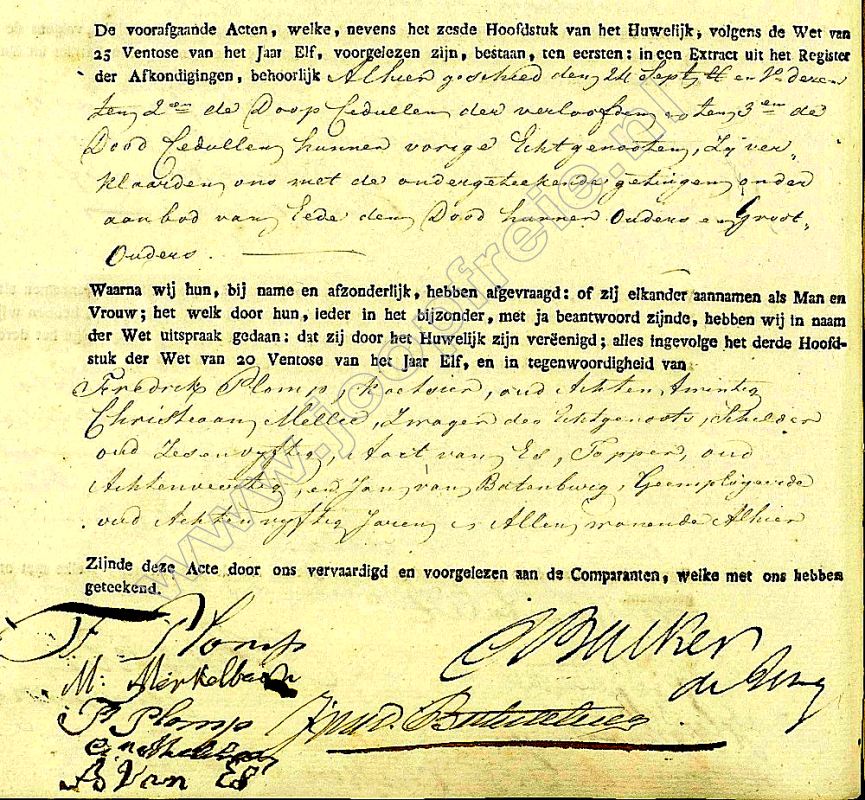 De voorafgaande Acten, welke, nevens het zesde Hoofdstuk van het Huwelijk, volgens de Wet van
25 Ventose van het Jaar Elf, voorgelezen zijn, bestaan, ten eersten: in een Extract uit het Register
der Afkondigingen, behoorlijk Alhier geschied den 24 Sept en 1o dezer
ten 2en de Doop Cedullen der verloofden en ten 3em de
Dood Cedullen hunner vorige Echtgenooten, Zij ver-
klaarden ons met de ondergeteekende getuigen onder
aanbod van Eede den Dood hunner Ouders en Groot-
Ouders.
Waarna wij hun, bij name en afzonderlijk, hebben afgevraagd: of zij elkander aannamen als Man en
Vrouw; het welk door hun, ieder in het bijzonder, met ja beantwoord zijnde, hebben wij in naam
der Wet uitspraak gedaan: dat zij door het Huwelijk zijn veréenigd; alles ingevolge het derde Hoofd-
stuk der Wet van 20 Ventose van het Jaar Elf, en in tegenwoordigheid van
Fredrik Plomp, oud Achten twintig
Christiaan Mellie, Zwager des Echtgenoots, Schilder
oud Zesenvyftig, Aart van Es, Tapper, oud
Achtenveertig, en Jan van Batenburg, Geemployeerde
oud Achtenvyftig Jaren, Allen wonende Alhier
Zijnde deze Acte door ons vervaardigd en voorgelezen aan de Comparanten, welke met ons hebben
geteekend.
F Plomp
M: Merkelbach
F Plomp
A Van Es
www.joopfreie.nl